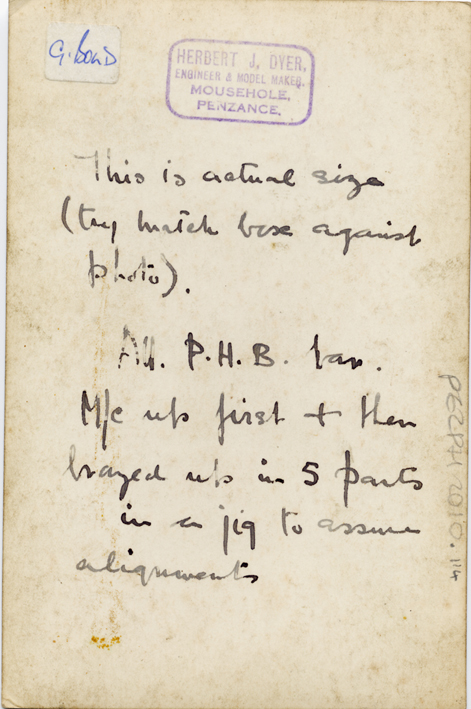 G. Bond
HERBERT J, DYER,
ENGINEER & MODEL MAKER.
MOUSEHOLE,
PENZANCE,
This is actual size
(try match box against
photo).
All. P.H.B. bar.
M/c up first + then
brazed up in 5 parts
in a jig to assure
alignments
PEZPH 2010.114